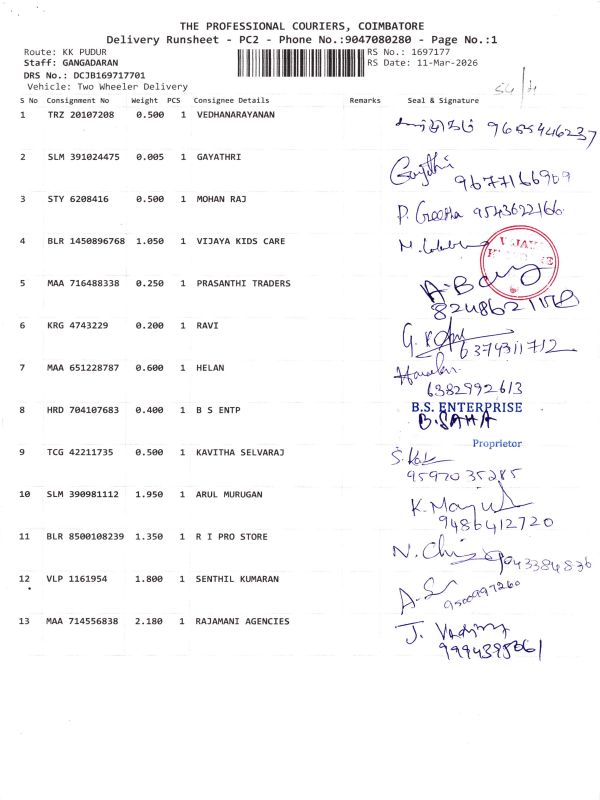 THE PROFESSIONAL COURIERS, COIMBATORE
Delivery Runsheet - PC2 - Phone No.:9047080280 - Page No.:1
Route: KK PUDUR RS No.: 1697177
Staff: GANGADARAN RS Date: 11-Mar-2026
DRS No.: DCJB169717701
Vehicle: Two Wheeler Delivery
S No Consignment No Weight PCS Consignee Details Remarks Seal & Signature
1 TRZ 20107208 0.500 1 VEDHANARAYANAN 9655446237
2 SLM 391024475 0.005 1 GAYATHRI Gayathri
9677166909
3 STY 6208416 0.500 1 MOHAN RAJ P. Geetha 9543622166
4 BLR 1450896768 1.050 1 VIJAYA KIDS CARE
5 MAA 716488338 0.250 1 PRASANTHI TRADERS
6 KRG 4743229 0.200 1 RAVI
6374311712
7 MAA 651228787 0.600 1 HELAN
6382992613
8 HRD 704107683 0.400 1 B S ENTP B.S. ENTERPRISE
B.SAHA
Proprietor
9 TCG 42211735 0.500 1 KAVITHA SELVARAJ
9597035285
10 SLM 390981112 1.950 1 ARUL MURUGAN
9486412720
11 BLR 8500108239 1.350 1 R I PRO STORE
9043384836
12 VLP 1161954 1.800 1 SENTHIL KUMARAN
9500997260
13 MAA 714556838 2.180 1 RAJAMANI AGENCIES
9994395061